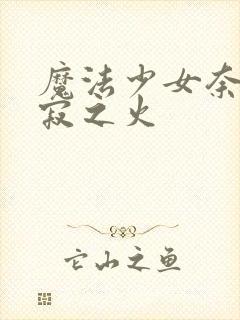 魔法少女奈
寂之火
它山之鱼